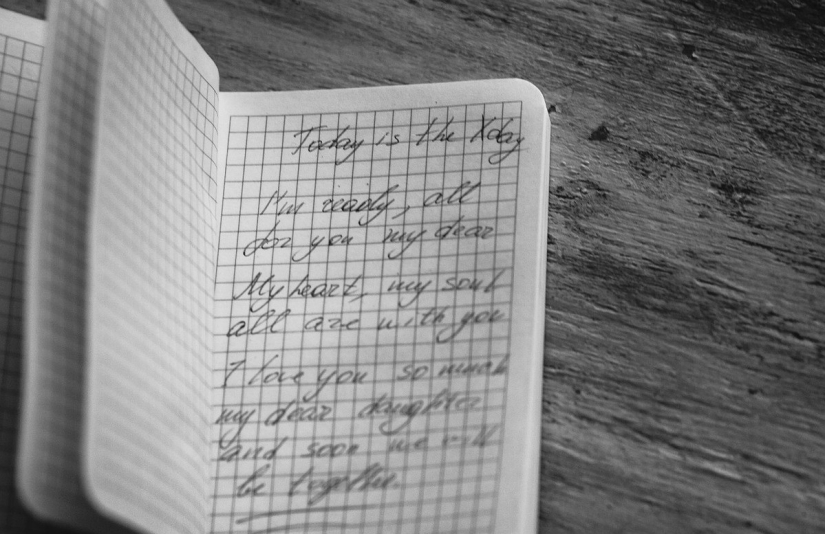 Today is the Xday
I'm ready, all
for you my dear
My heart, my soul
all are with you
I love you so much
my dear daughter
and soon we will
be together.